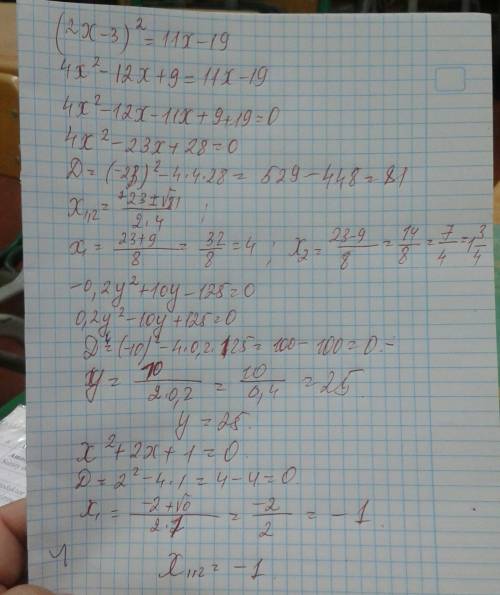 (2x-3)² = 11x-19
4x²-12x+9 = 11x-19
4x²-12x-11x+9+19=0
4x²-23x+28=0
D = (-23)²-4·4·28 = 529-448=81
x₁,₂ = (23±√81)/(2·4) ;
x₁ = (23+9)/8 = 32/8 = 4 ; x₂ = (23-9)/8 = 14/8 = 7/4 = 1 3/4
-0,2y²+10y-125=0
0,2y²-10y+125=0
D = (-10)²-4·0,2·125 = 100-100=0
y = 10/(2·0,2) = 10/0,4 = 25
y = 25.
x²+2x+1=0
D = 2²-4·1 = 4-4=0
x₁ = (-2+√0)/(2·1) = -2/2 = -1
x₁,₂ = -1